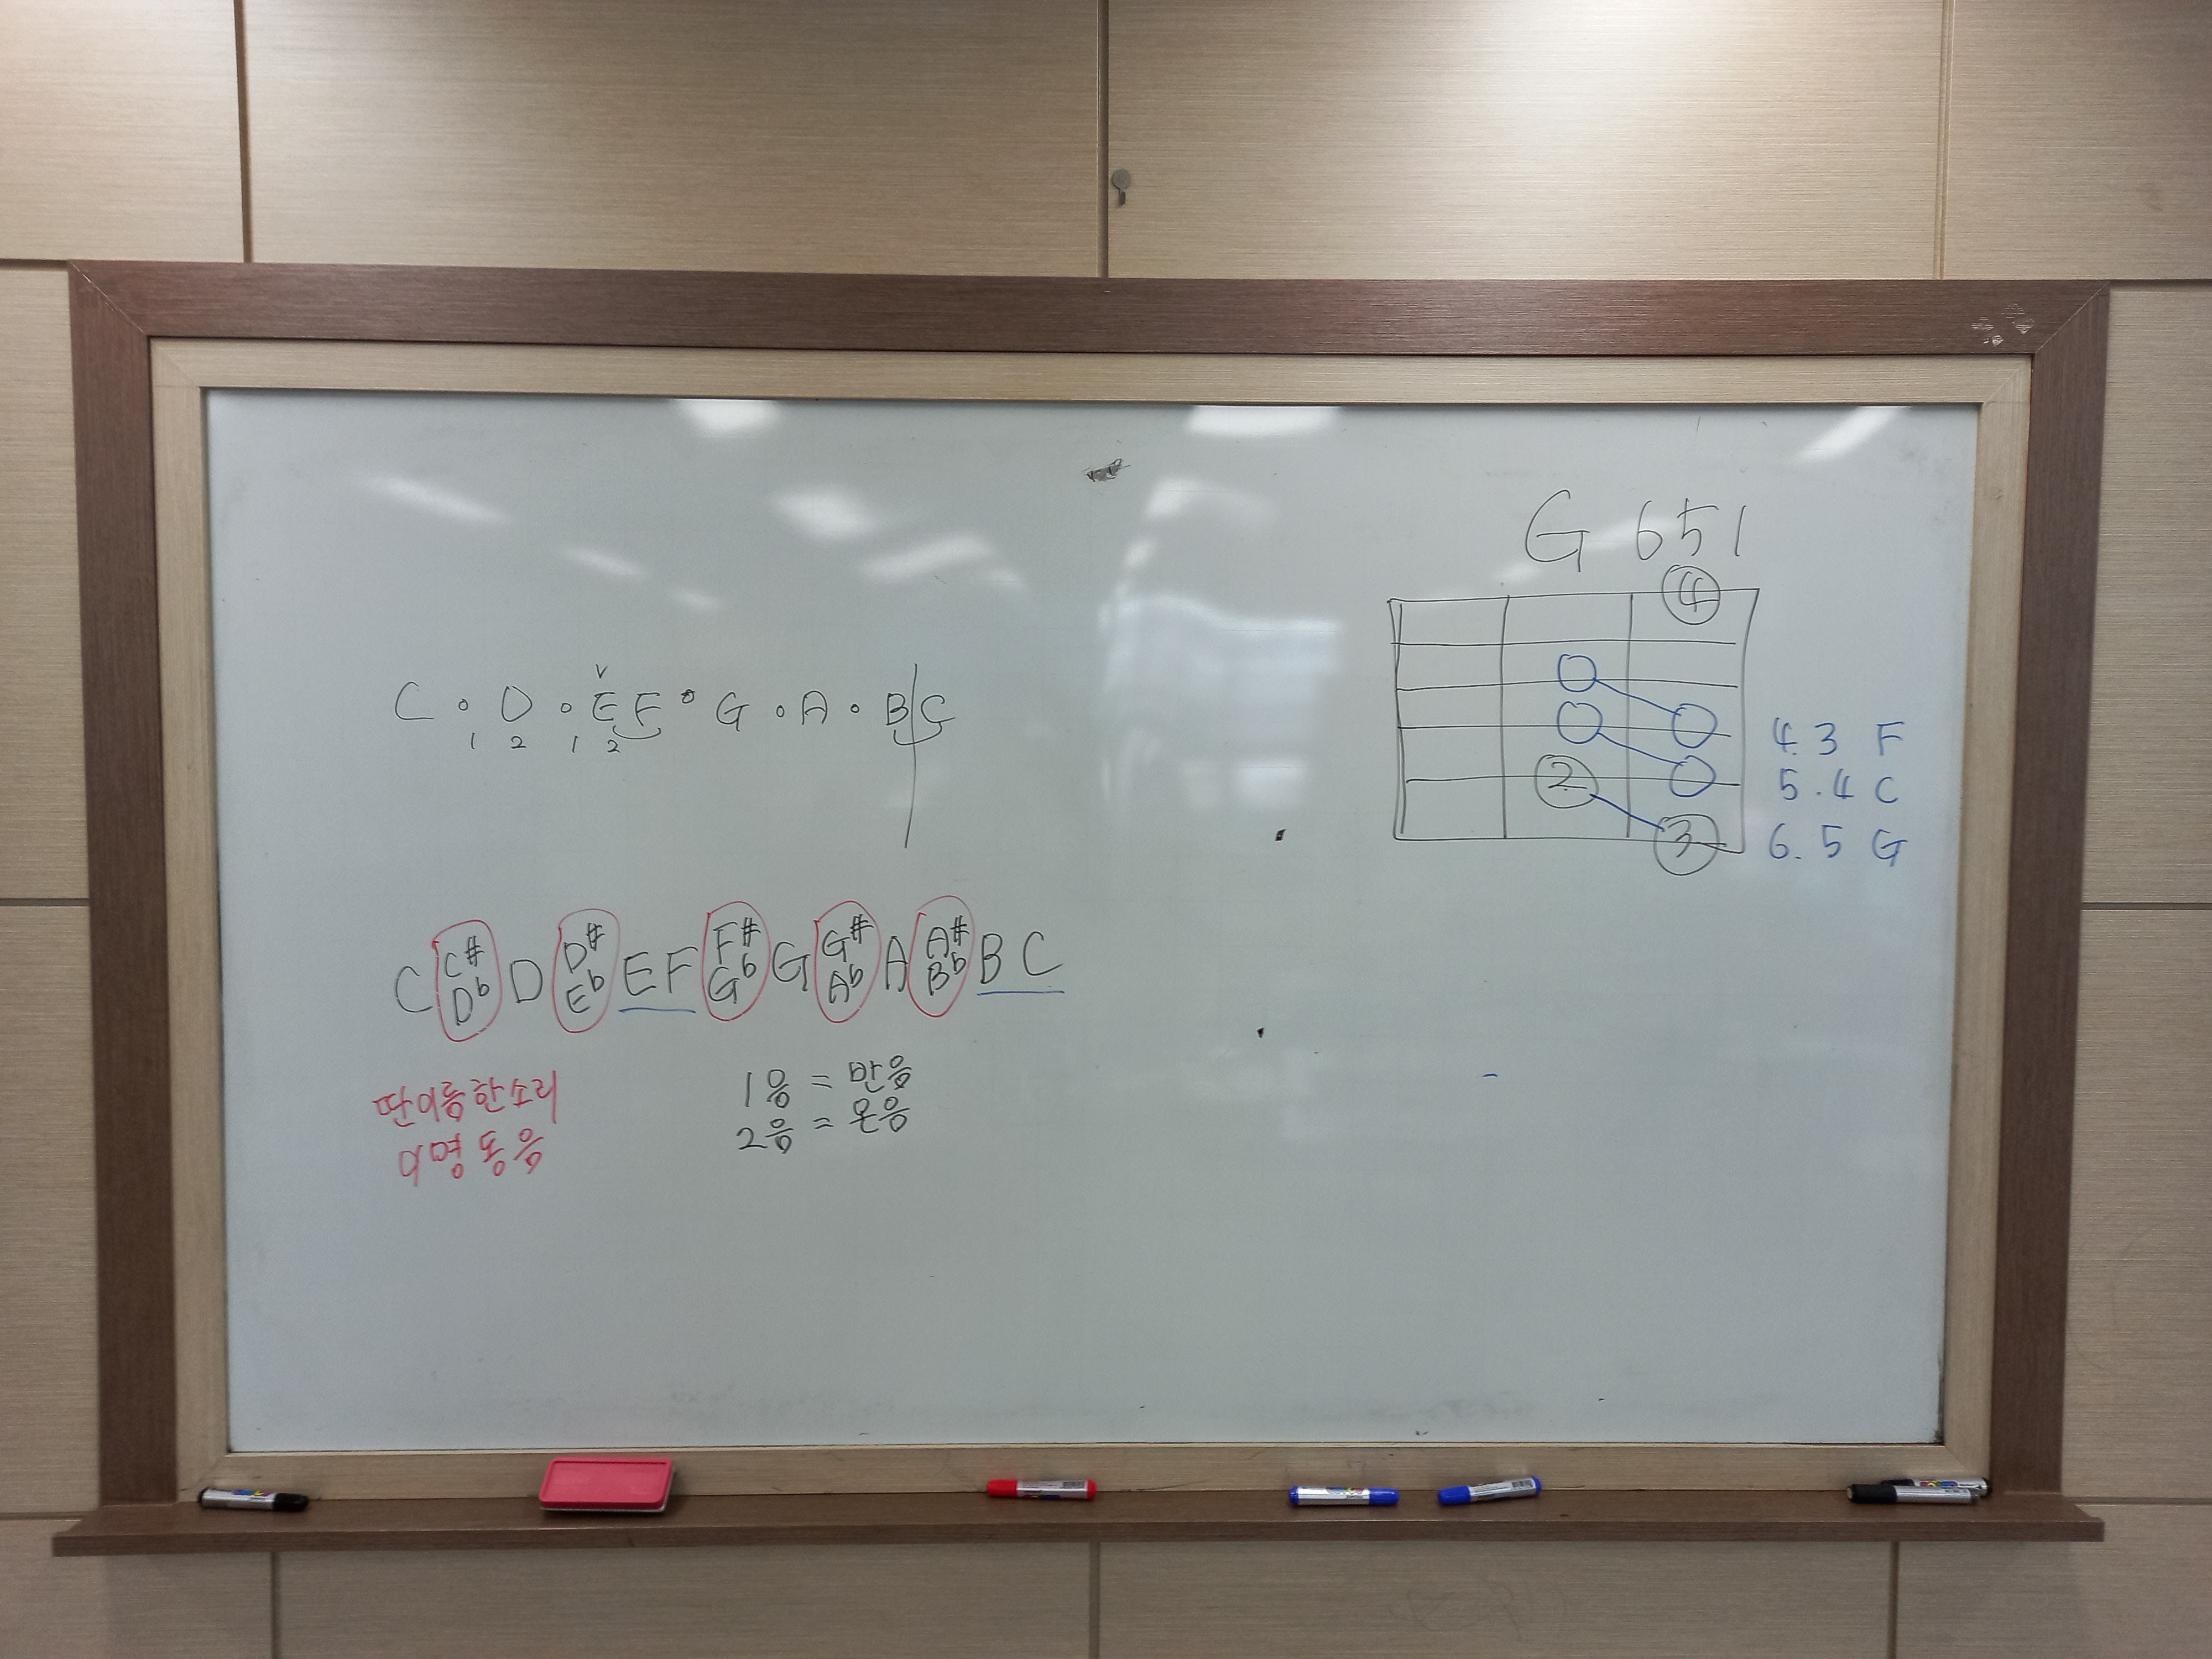 G 651
4
C o D o E F o G o A o B C
v
1 2 1 2
2
3
4.3 F
5.4 C
6.5 G
C C# D♭ D D# E♭ E F F# G♭ G G# A♭ A A# B♭ B C
딴이름한소리
이명동음
1음 = 반음
2음 = 온음